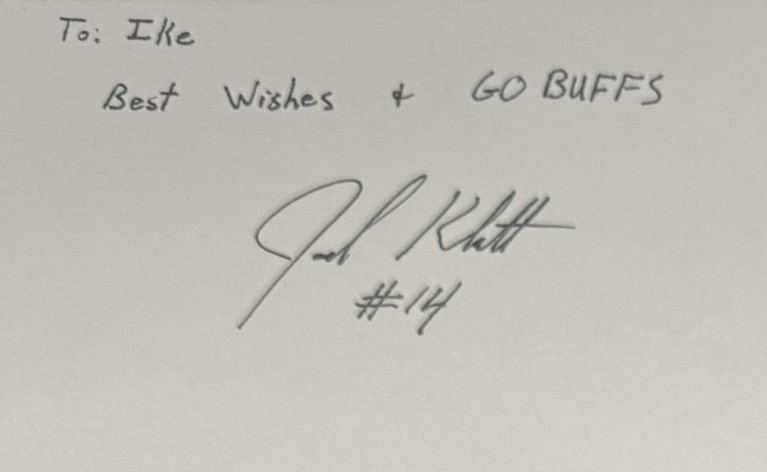 To: Ike
Best Wishes & GO BUFFS
Joel Klatt
#14